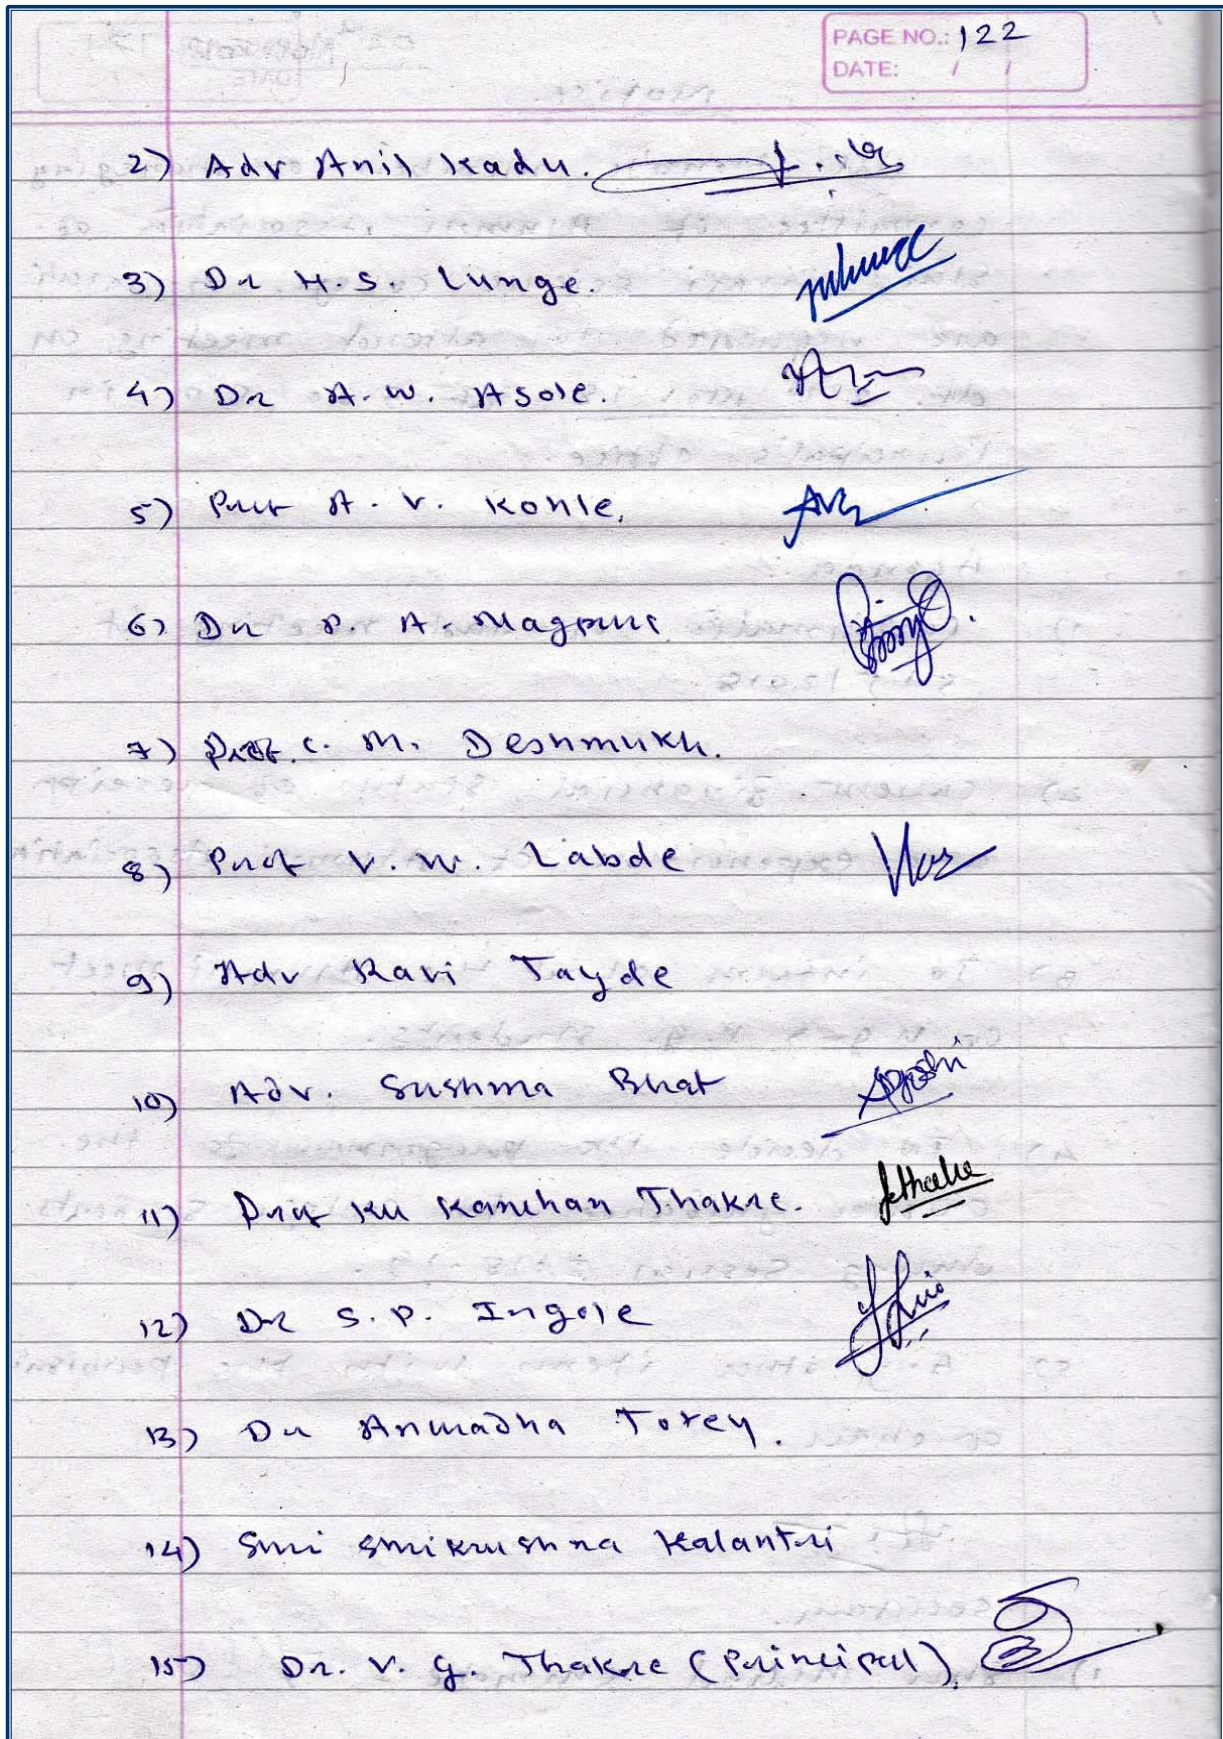 PAGE NO.: 122
DATE: / /
2) Adv Anil Kadu.
3) Dr H.S. Lunge.
4) Dr A.W. Asole.
5) Prof A.V. Kohle.
6) Dr P.A. Nagpure
7) Prof. C.M. Deshmukh.
8) Prof V.W. Labde
9) Adv Ravi Tayde
10) Adv. Sushma Bhat
11) Prof Ku Kanchan Thakre.
12) Dr S.P. Ingole
13) Dr Anuradha Totey.
14) Shri Shrikrushna Kalantri
15) Dr. V.G. Thakre (Principal).